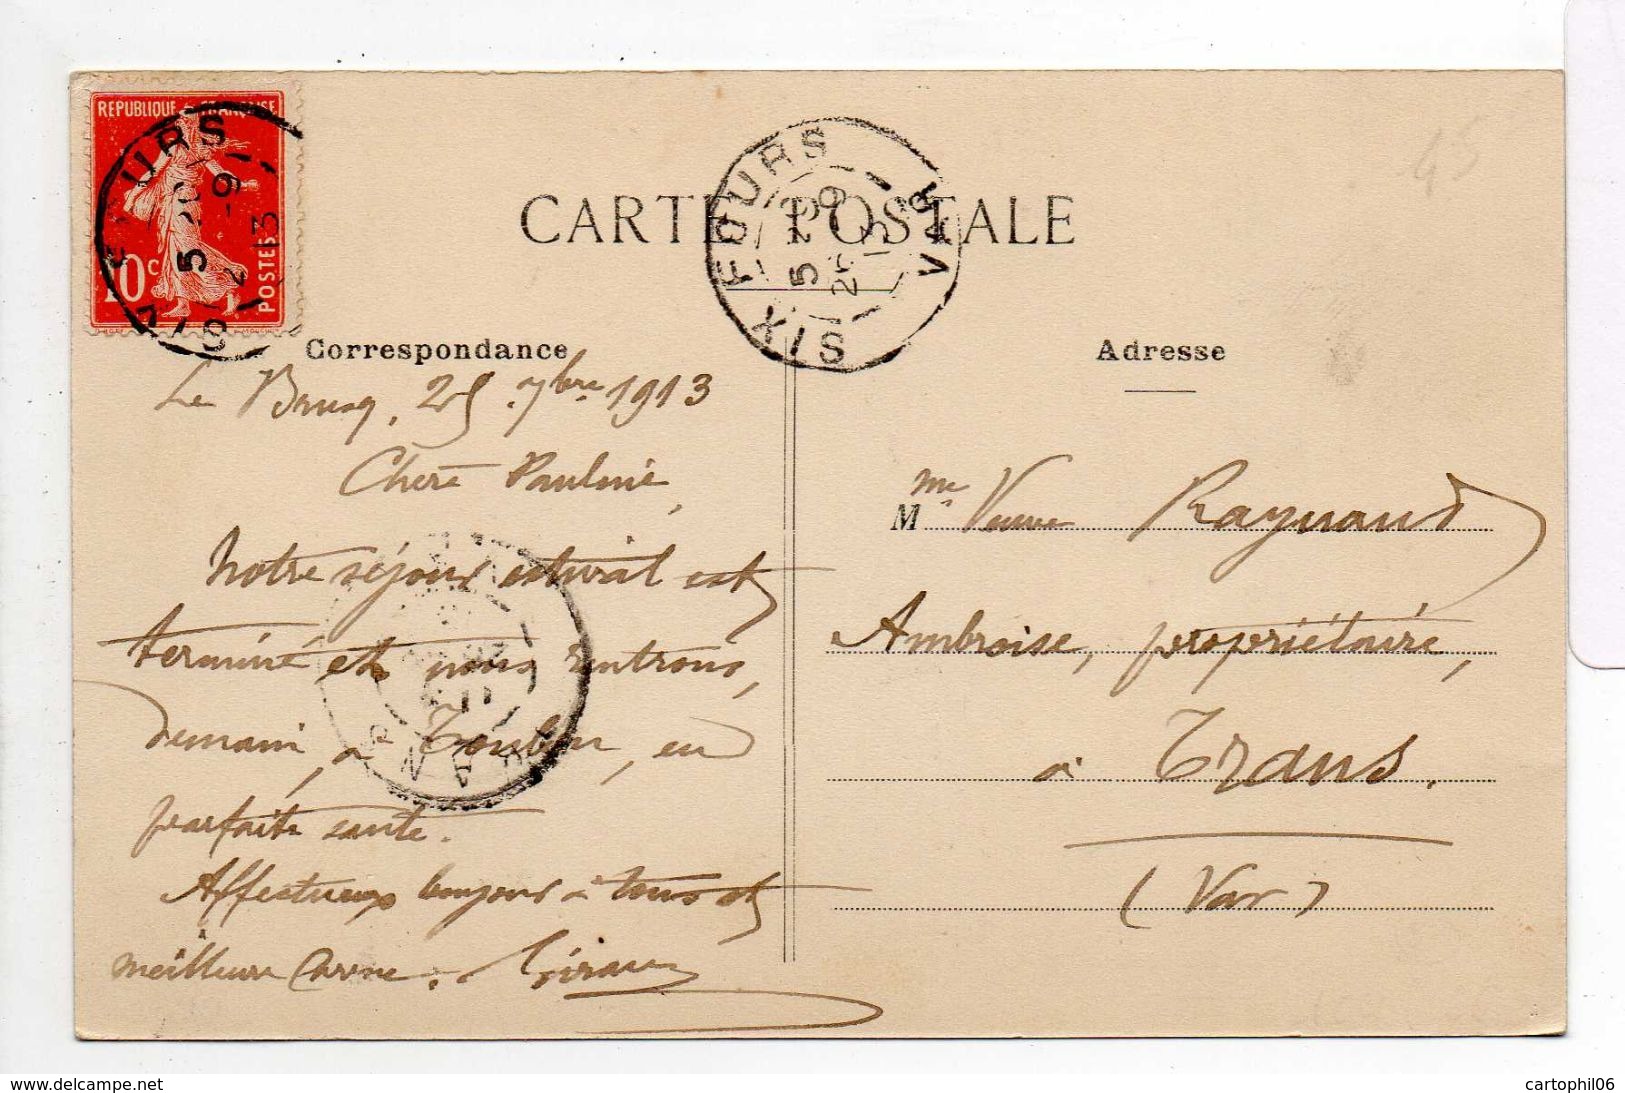 REPUBLIQUE FRANÇAISE
10c
POSTES
SIX FOURS
5
SIX FOURS
VAR
CARTE POSTALE
Correspondance
Le Brusq, 25 7bre 1913
Chère Pauline,
Notre séjour estival est
terminé et nous rentrons,
demain, à Toulon, en
parfaite santé.
Affectueux bonjour à tous et
meilleure
Adresse
Mme Veuve Raynaud
Ambroise, propriétaire,
à Trans.
(Var)
45
www.delcampe.net
cartophil06